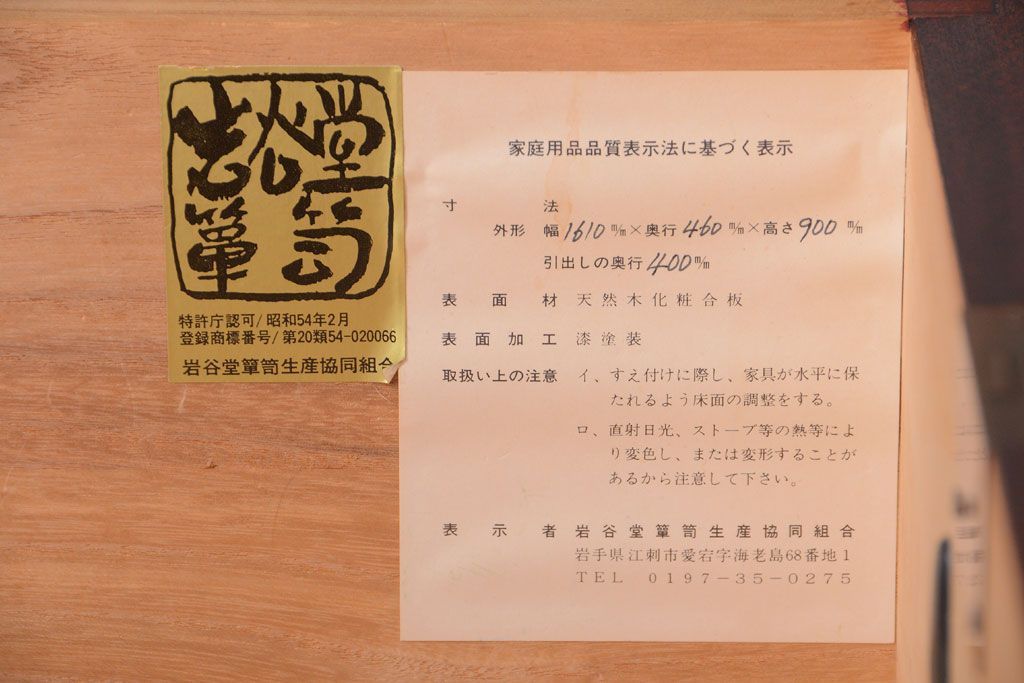 岩谷堂
簞笥
特許庁認可/昭和54年2月
登録商標番号/第20類54-020066
岩谷堂簞笥生産協同組合
家庭用品品質表示法に基づく表示
寸法
外形 幅1610m/m×奥行460m/m×高さ900m/m
引出しの奥行400m/m
表面材 天然木化粧合板
表面加工 漆塗装
取扱い上の注意 イ、すえ付けに際し、家具が水平に保
たれるよう床面の調整をする。
ロ、直射日光、ストーブ等の熱等によ
り変色し、または変形することが
あるから注意して下さい。
表示者 岩谷堂簞笥生産協同組合
岩手県江刺市愛宕字海老島68番地1
TEL 0197-35-0275